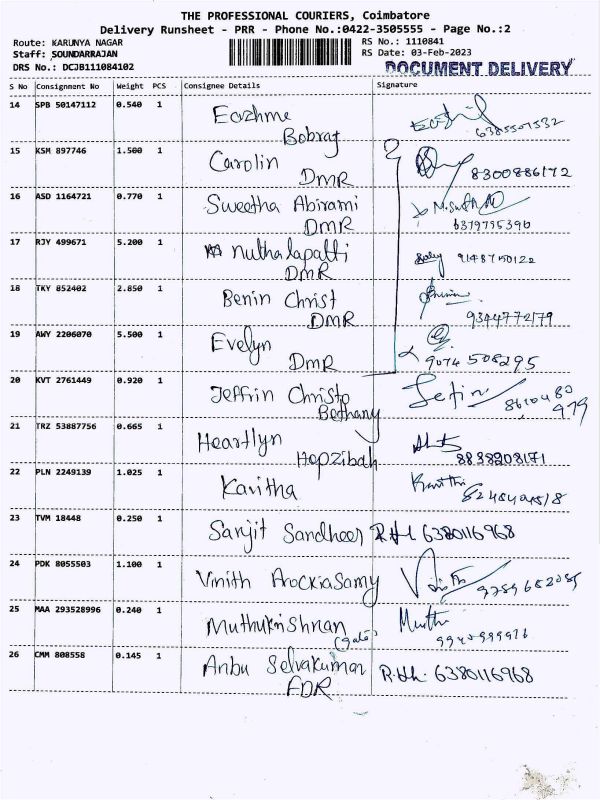 THE PROFESSIONAL COURIERS, Coimbatore
Delivery Runsheet - PRR - Phone No.:0422-3505555 - Page No.:2
Route: KARUNYA NAGAR
Staff: SOUNDARRAJAN
DRS No.: DCJB111084102
RS No.: 1110841
RS Date: 03-Feb-2023
DOCUMENT DELIVERY
S No Consignment No Weight PCS Consignee Details Signature
14 SPB 50147112 0.540 1 Eazhme
Bobraj
6385507532
15 KSM 897746 1.500 1 Carolin
DMR 8300886172
16 ASD 1164721 0.770 1 Sweetha Abirami
DMR 6379795390
17 RJY 499671 5.200 1 nuthalapatti
DMR
18 TKY 852402 2.850 1 Benin Christ
DMR 9344772179
19 AWY 2206070 5.500 1 Evelyn
DMR 9074 508295
20 KVT 2761449 0.920 1 Jeffrin Christo
Bethany 8610480
979
21 TRZ 53887756 0.665 1 Heartlyn
Hepzibah 8838208171
22 PLN 2249139 1.025 1 Kavitha
23 TVM 18448 0.250 1 Sanjit Sandheer 6380116968
24 PDK 8055503 1.100 1 Vinith Arockiasamy
25 MAA 293528996 0.240 1 Muthukrishnan
(gate)
26 CMM 808558 0.145 1 Anbu Selvakumar 6380116968
FDR